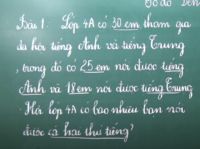 Bài 1: Lớp 4A có 30 em tham gia
dạ hội tiếng Anh và tiếng Trung
, trong đó có 25 em nói được tiếng
Anh và 18 em nói được tiếng Trung
Hỏi lớp 4A có bao nhiêu bạn nói
được cả hai thứ tiếng?